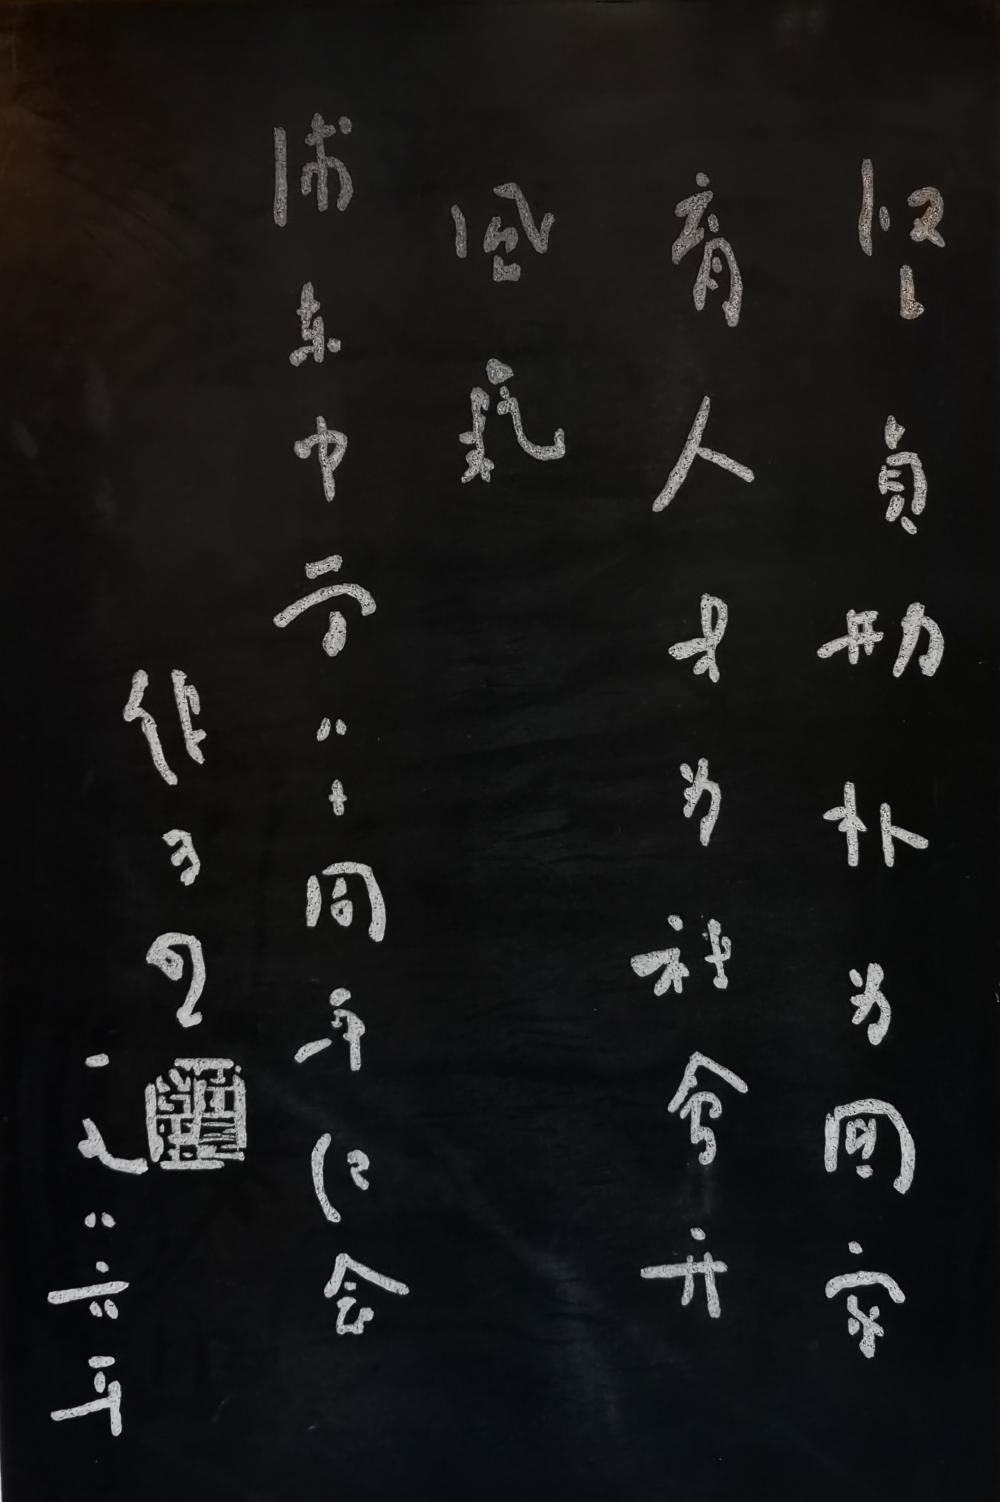 坚贞勤朴为国家
育人才为社会开
风气
浦东中学八十周年纪念
一九八六年